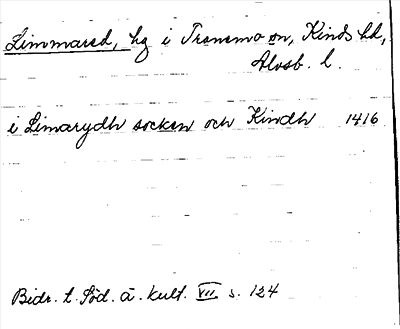 Limmared, hg i Tranemo sn, Kinds hd,
Älvsb. l.
i Limarydh socken och Kindh 1416
Bidr. t. Söd. ä. kult. VII s. 124